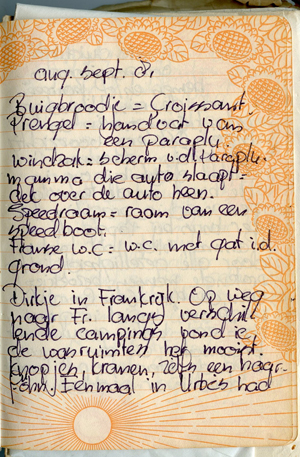 aug. sept. 8.
Buigbroodje = Croissant.
Prengel = handvat van
een paraplu.
windzak = scherm v.d. paraplu.
mamma die auto slaapt =
dek over de auto heen.
Speedraam = raam van een
speedboot.
Franse w.c = w.c. met gat i.d.
grond.
Dirkje in Frankrijk. Op weg
naar Fr. langs verschil
lende campings vond ie
de wasruimten het mooist.
Knopjes, kranen, zelfs een haar-
föhn. Eenmaal in Urbes had